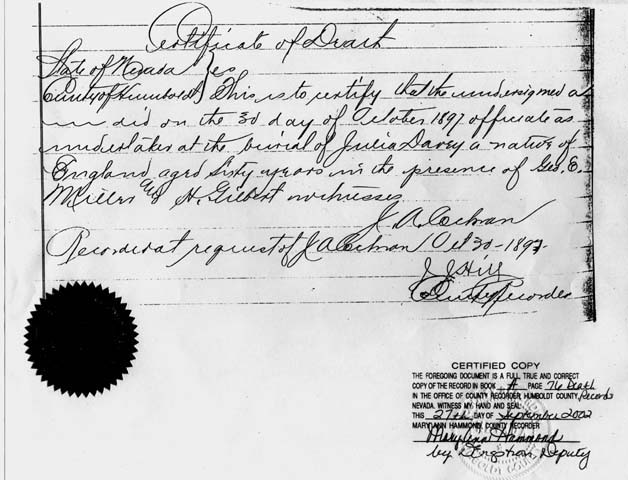 Certificate of Death
State of Nevada } ss
County of Humboldt } This is to certify that the undersigned
did on the 30 day of October 1897 officiate as
undertaker at the burial of Julia Davey a native of
England aged Sixty years in the presence of Geo. E.
Miller and H. Gilbert witnesses
J. A. Cochran
Recorded at request of J A Cochran Oct 30 - 1897-
J J Hill
County Recorder
CERTIFIED COPY
THE FOREGOING DOCUMENT IS A FULL, TRUE AND CORRECT
COPY OF THE RECORD IN BOOK A PAGE 76 Death
IN THE OFFICE OF COUNTY RECORDER, HUMBOLDT COUNTY, Records
NEVADA. WITNESS MY HAND AND SEAL
THIS 27th DAY OF September 2002
MARY ANN HAMMOND, COUNTY RECORDER
Mary Ann Hammond
by Engstrom, Deputy